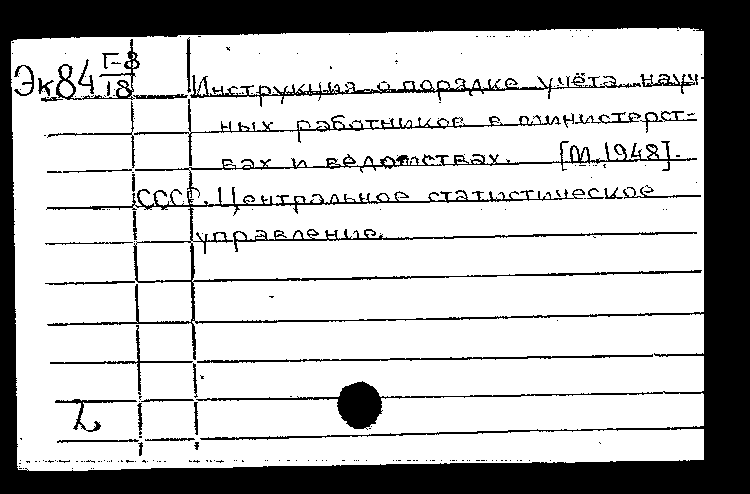 Эк84 Г-8/18 Инструкция о порядке учёта науч-
ных работников в министерст-
вах и ведомствах. [М., 1948].
СССР. Центральное статистическое
управление.
2